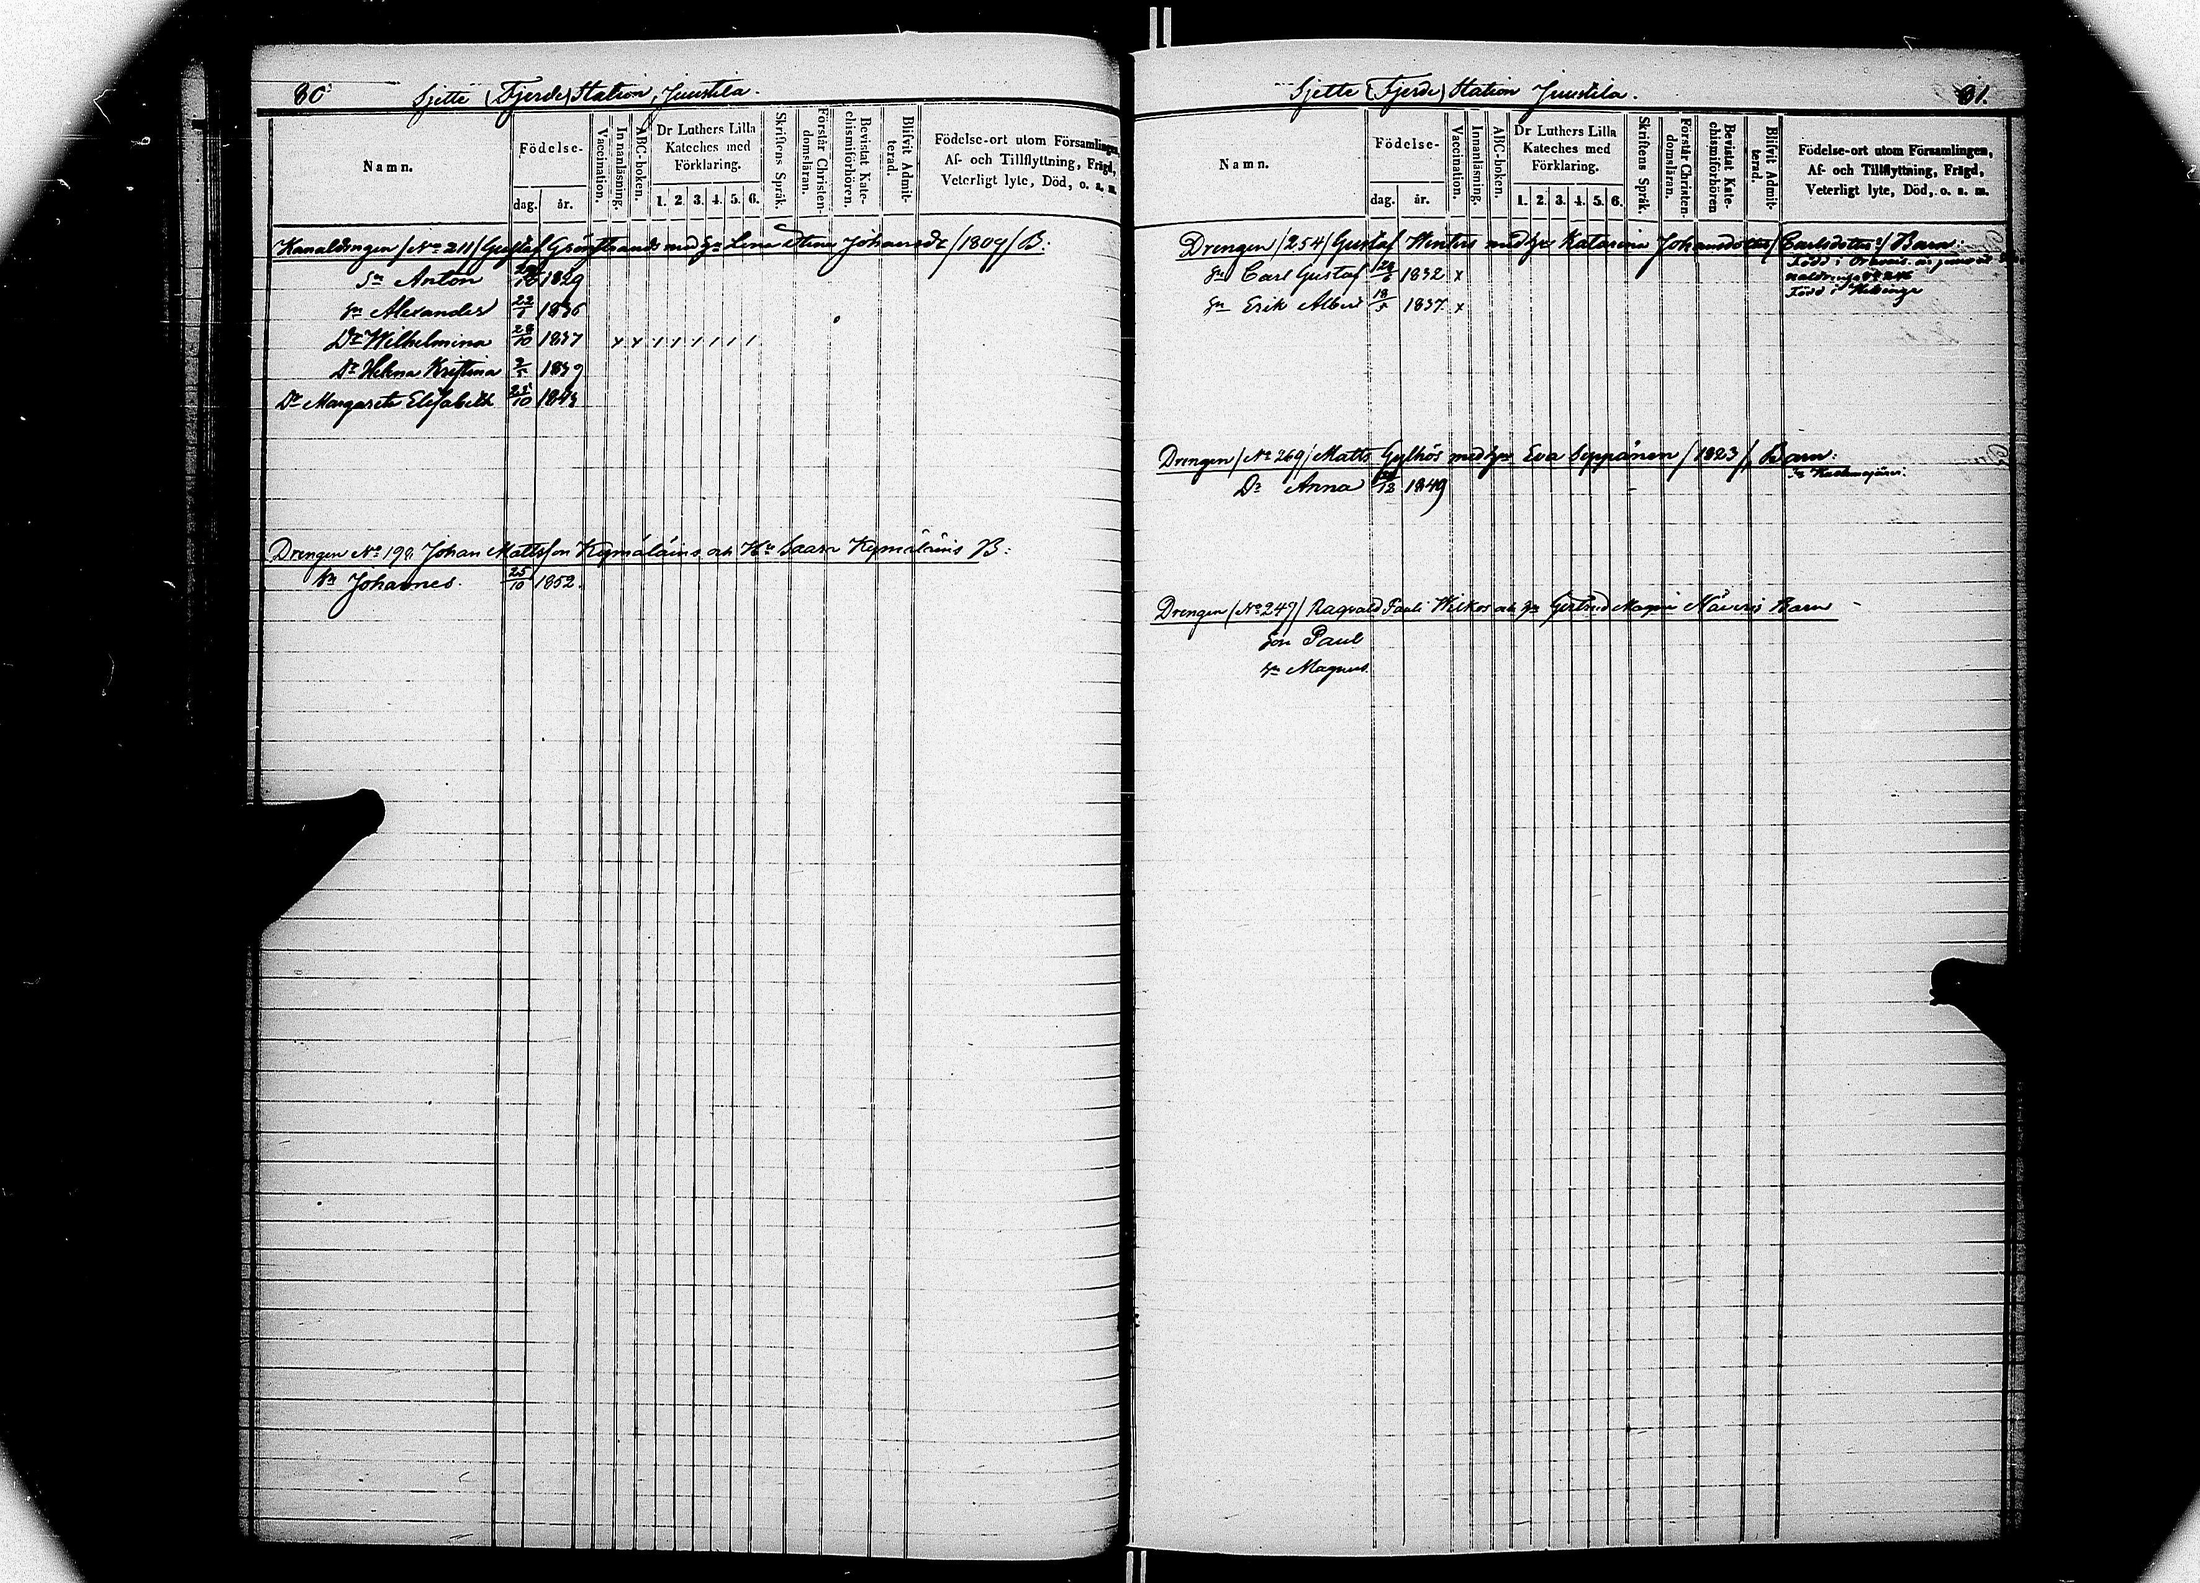 80
Sjette (Fjerde) Station, Juustila.
Namn.
Födelse-
dag. år.
Vaccination.
Innanläsning.
ABC-boken.
Dr Luthers Lilla Kateches med Förklaring.
1. 2. 3. 4. 5. 6.
Skriftens Språk.
Förstår Christendomsläran.
Bevistat Katechismiförhören.
Blifvit Admitterad.
Födelse-ort utom Församlingen,
Af- och Tillflyttning, Frägd,
Veterligt lyte, Död, o. s. m.
Kanaldrengen /No 211/ Gustaf Grönstrands med h:u Lena Stina Johansdr /1809/ B:
Sn Anton 1829
Sn Alexander 1836
Dr Wilhelmina 28/10 1837 x x / / / / / /
Dr Helena Kristina 1839
Dr Margareta Elisabeth 25/10 1843
Drengen No 190. Johan Mattsson Kymäläins och Hu Saara Kymäläins B:
Sn Johannes. 25/10 1852.
Sjette (Fjerde) Station Juustila.
81.
Namn.
Födelse-
dag. år.
Vaccination.
Innanläsning.
ABC-boken.
Dr Luthers Lilla Kateches med Förklaring.
1. 2. 3. 4. 5. 6.
Skriftens Språk.
Förstår Christendomsläran.
Bevistat Katechismiförhören
Blifvit Admitterad.
Födelse-ort utom Församlingen,
Af- och Tillflyttning, Frägd,
Veterligt lyte, Död, o. s. m.
Drengen /254/ Gustaf Winters med hu Katarina Johansdotter /Carlsdotter/ Barn:
Sn Carl Gustaf 28/6 1832 x Född i
Sn Erik Albert 18/5 1837. x Född i Helsinge
Drengen /No 269/ Matts Gylkös med hu Eva Seppänen /1823/, Barn:
Dr Anna 12 1849
Drengen /No 247/ Ragvald Pauli Wilkos och hu Gertrud Magni Näveris Barn
Son Paul
Sn Magnus.